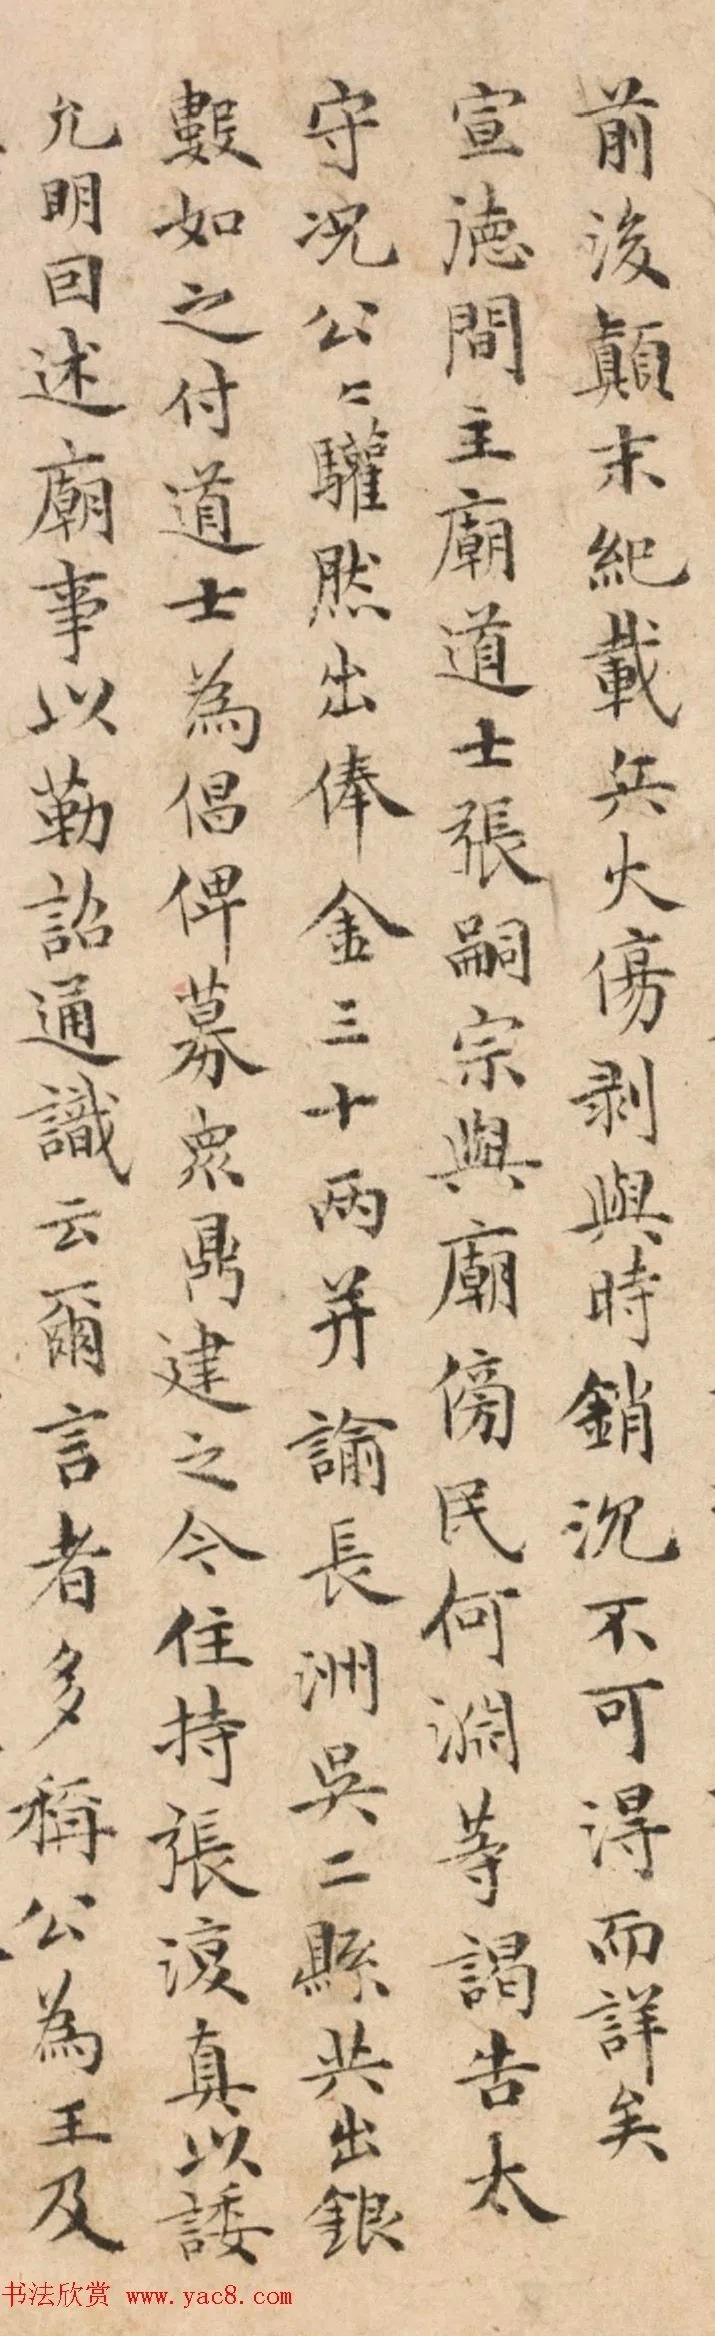 前後顛末紀載兵火傷剥與時銷沉不可得而詳矣
宣德間主廟道士張嗣宗與廟傍民何淵等謁告太
守况公〻驩然出俸金三十兩并諭長洲吳二縣共出銀
數如之付道士為倡俾募衆鼎建之今住持張復真以諉
允明回述廟事以勒詔通識云爾言者多稱公為王及
书法欣赏 www.yac8.com